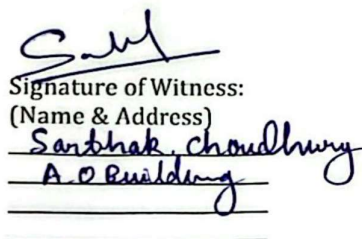 Signature of Witness:
(Name & Address)
Sarthak. Choudhury
A.O Building